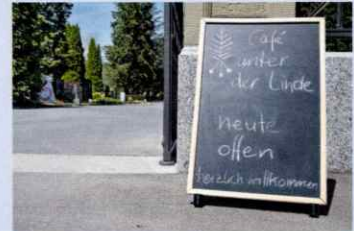 Café
unter
der Linde
heute
offen
herzlich willkommen